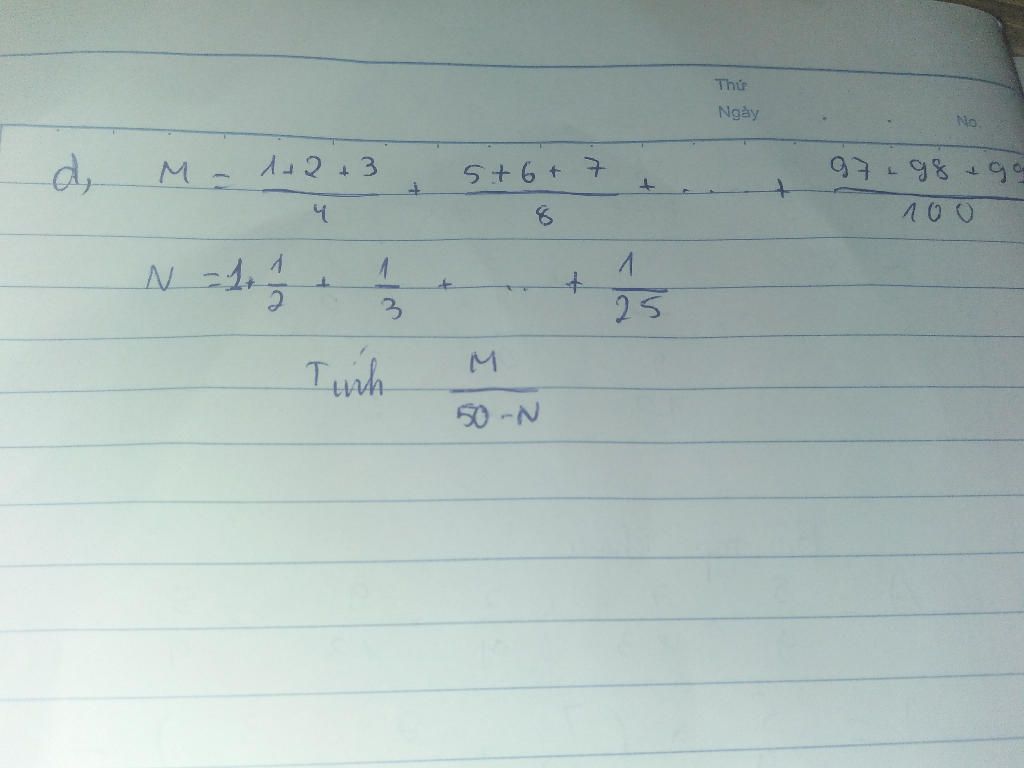 Thứ
Ngày No.
d, M = \frac{1+2+3}{4} + \frac{5+6+7}{8} + .... + \frac{97+98+99}{100}
N = 1+\frac{1}{2} + \frac{1}{3} + .. + \frac{1}{25}
Tính \frac{M}{50-N}